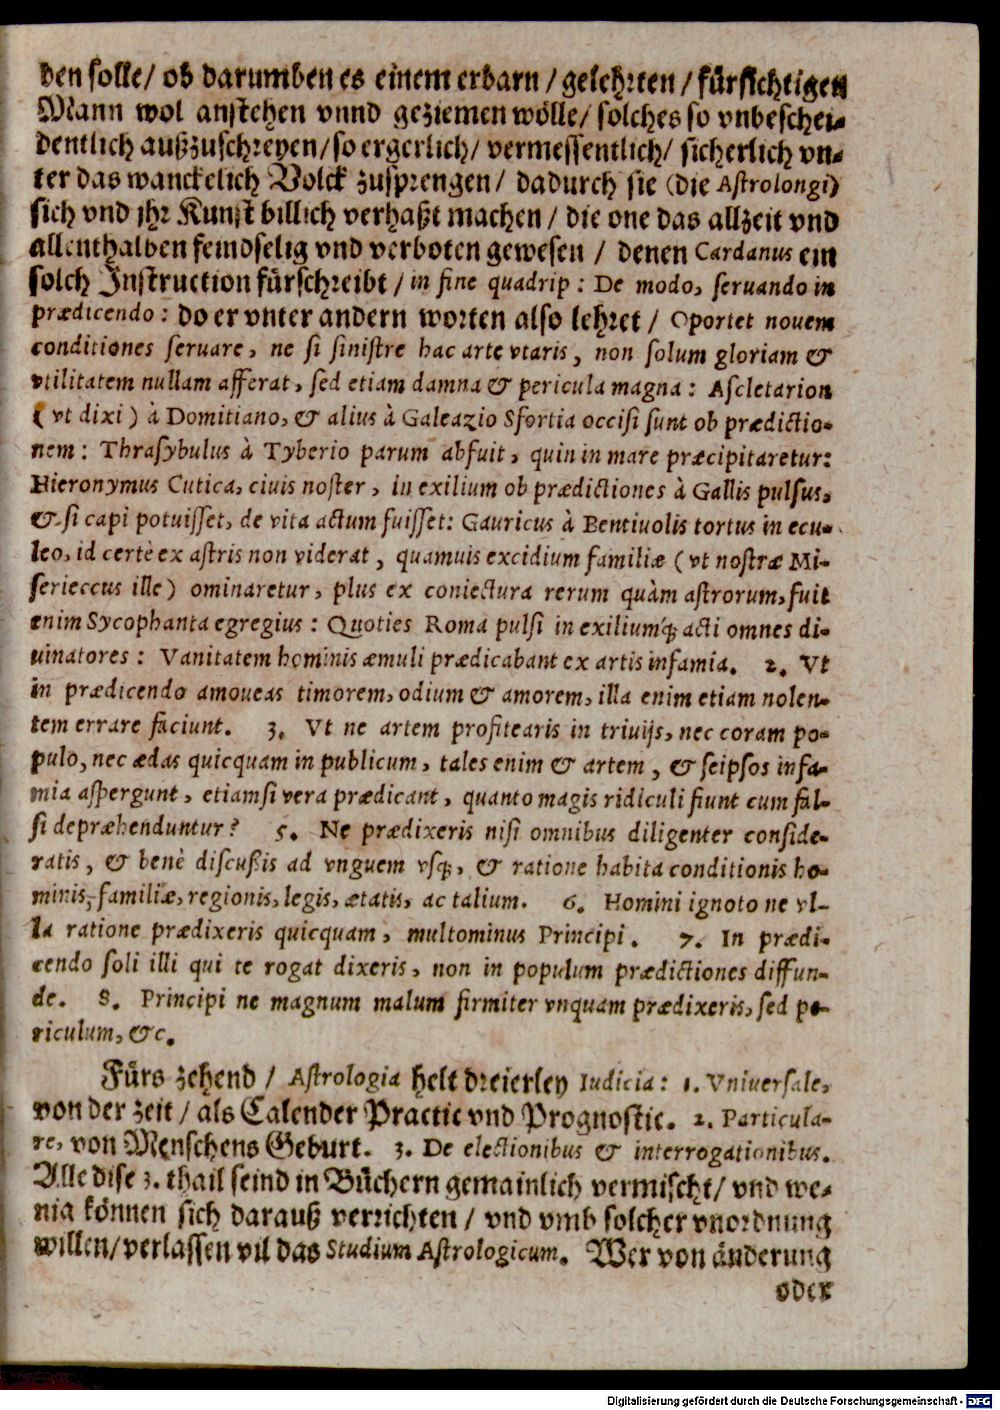 den solle/ ob darumben es einem erbarn /gelehrten /fürsichtigen
Mann wol anstehen vnnd geziemen wölle/ solches so vnbeschei-
dentlich außzuschreyen/so ergerlich/ vermessentlich/ sicherlich vn-
ter das wanckelich Volck zusprengen/ dadurch sie (die Astrolongi)
sich vnd jhr Kunst billich verhaßt machen / die one das allzeit vnd
allenthalben feindselig vnd verboten gewesen / denen Cardanus ein
solch Instruction fürschreibt / in fine quadrip : De modo, seruando in
prædicendo : do er vnter andern worten also lehret / Oportet nouem
conditiones seruare, ne si sinistre hac arte vtaris, non solum gloriam &
vtilitatem nullam afferat, sed etiam damna & pericula magna : Ascletarion
( vt dixi ) à Domitiano, & alius à Galeazio Sfortia occisi sunt ob prædictio-
nem : Thrasybulus à Tyberio parum abfuit, quin in mare præcipitaretur:
Hieronymus Cutica, ciuis noster, in exilium ob prædictiones à Gallis pulsus,
& si capi potuisset, de vita actum fuisset: Gauricus à Bentiuolis tortus in ecu-
leo, id certè ex astris non viderat, quamuis excidium familiæ ( vt nostræ Mi-
serieccus ille ) ominaretur, plus ex coniectura rerum quàm astrorum, fuit
enim Sycophanta egregius : Quoties Roma pulsi in exiliumq́; acti omnes di-
uinatores : Vanitatem hominis æmuli prædicabant ex artis infamia. 2. Vt
in prædicendo amoueas timorem, odium & amorem, illa enim etiam nolen-
tem errare faciunt. 3. Vt ne artem profitearis in triuijs, nec coram po-
pulo, nec ædas quicquam in publicum, tales enim & artem, & seipsos infa-
mia aspergunt, etiamsi vera prædicant, quanto magis ridiculi fiunt cum fal-
si depræhenduntur? 5. Ne prædixeris nisi omnibus diligenter conside-
ratis, & benè discußis ad vnguem vsq;, & ratione habita conditionis ho-
minis, familiæ, regionis, legis, ætatis, ac talium. 6. Homini ignoto ne vl-
la ratione prædixeris quicquam, multominus Principi. 7. In prædi-
cendo soli illi qui te rogat dixeris, non in populum prædictiones diffun-
de. 8. Principi ne magnum malum firmiter vnquam prædixeris, sed pe-
riculum, &c.
Fürs zehend / Astrologia helt dreierley Iudicia: 1. Vniuersale,
von der zeit / als Calender Practic vnd Prognostic. 2. Particula-
re, von Menschens Geburt. 3. De electionibus & interrogationibus.
Alle dise 3. thail seind in Büchern gemainlich vermischt/ vnd we-
nig können sich darauß verrichten / vnd vmb solcher vnordnung
willen/verlassen vil das Studium Astrologicum. Wer von änderung
oder
Digitalisierung gefördert durch die Deutsche Forschungsgemeinschaft - DFG